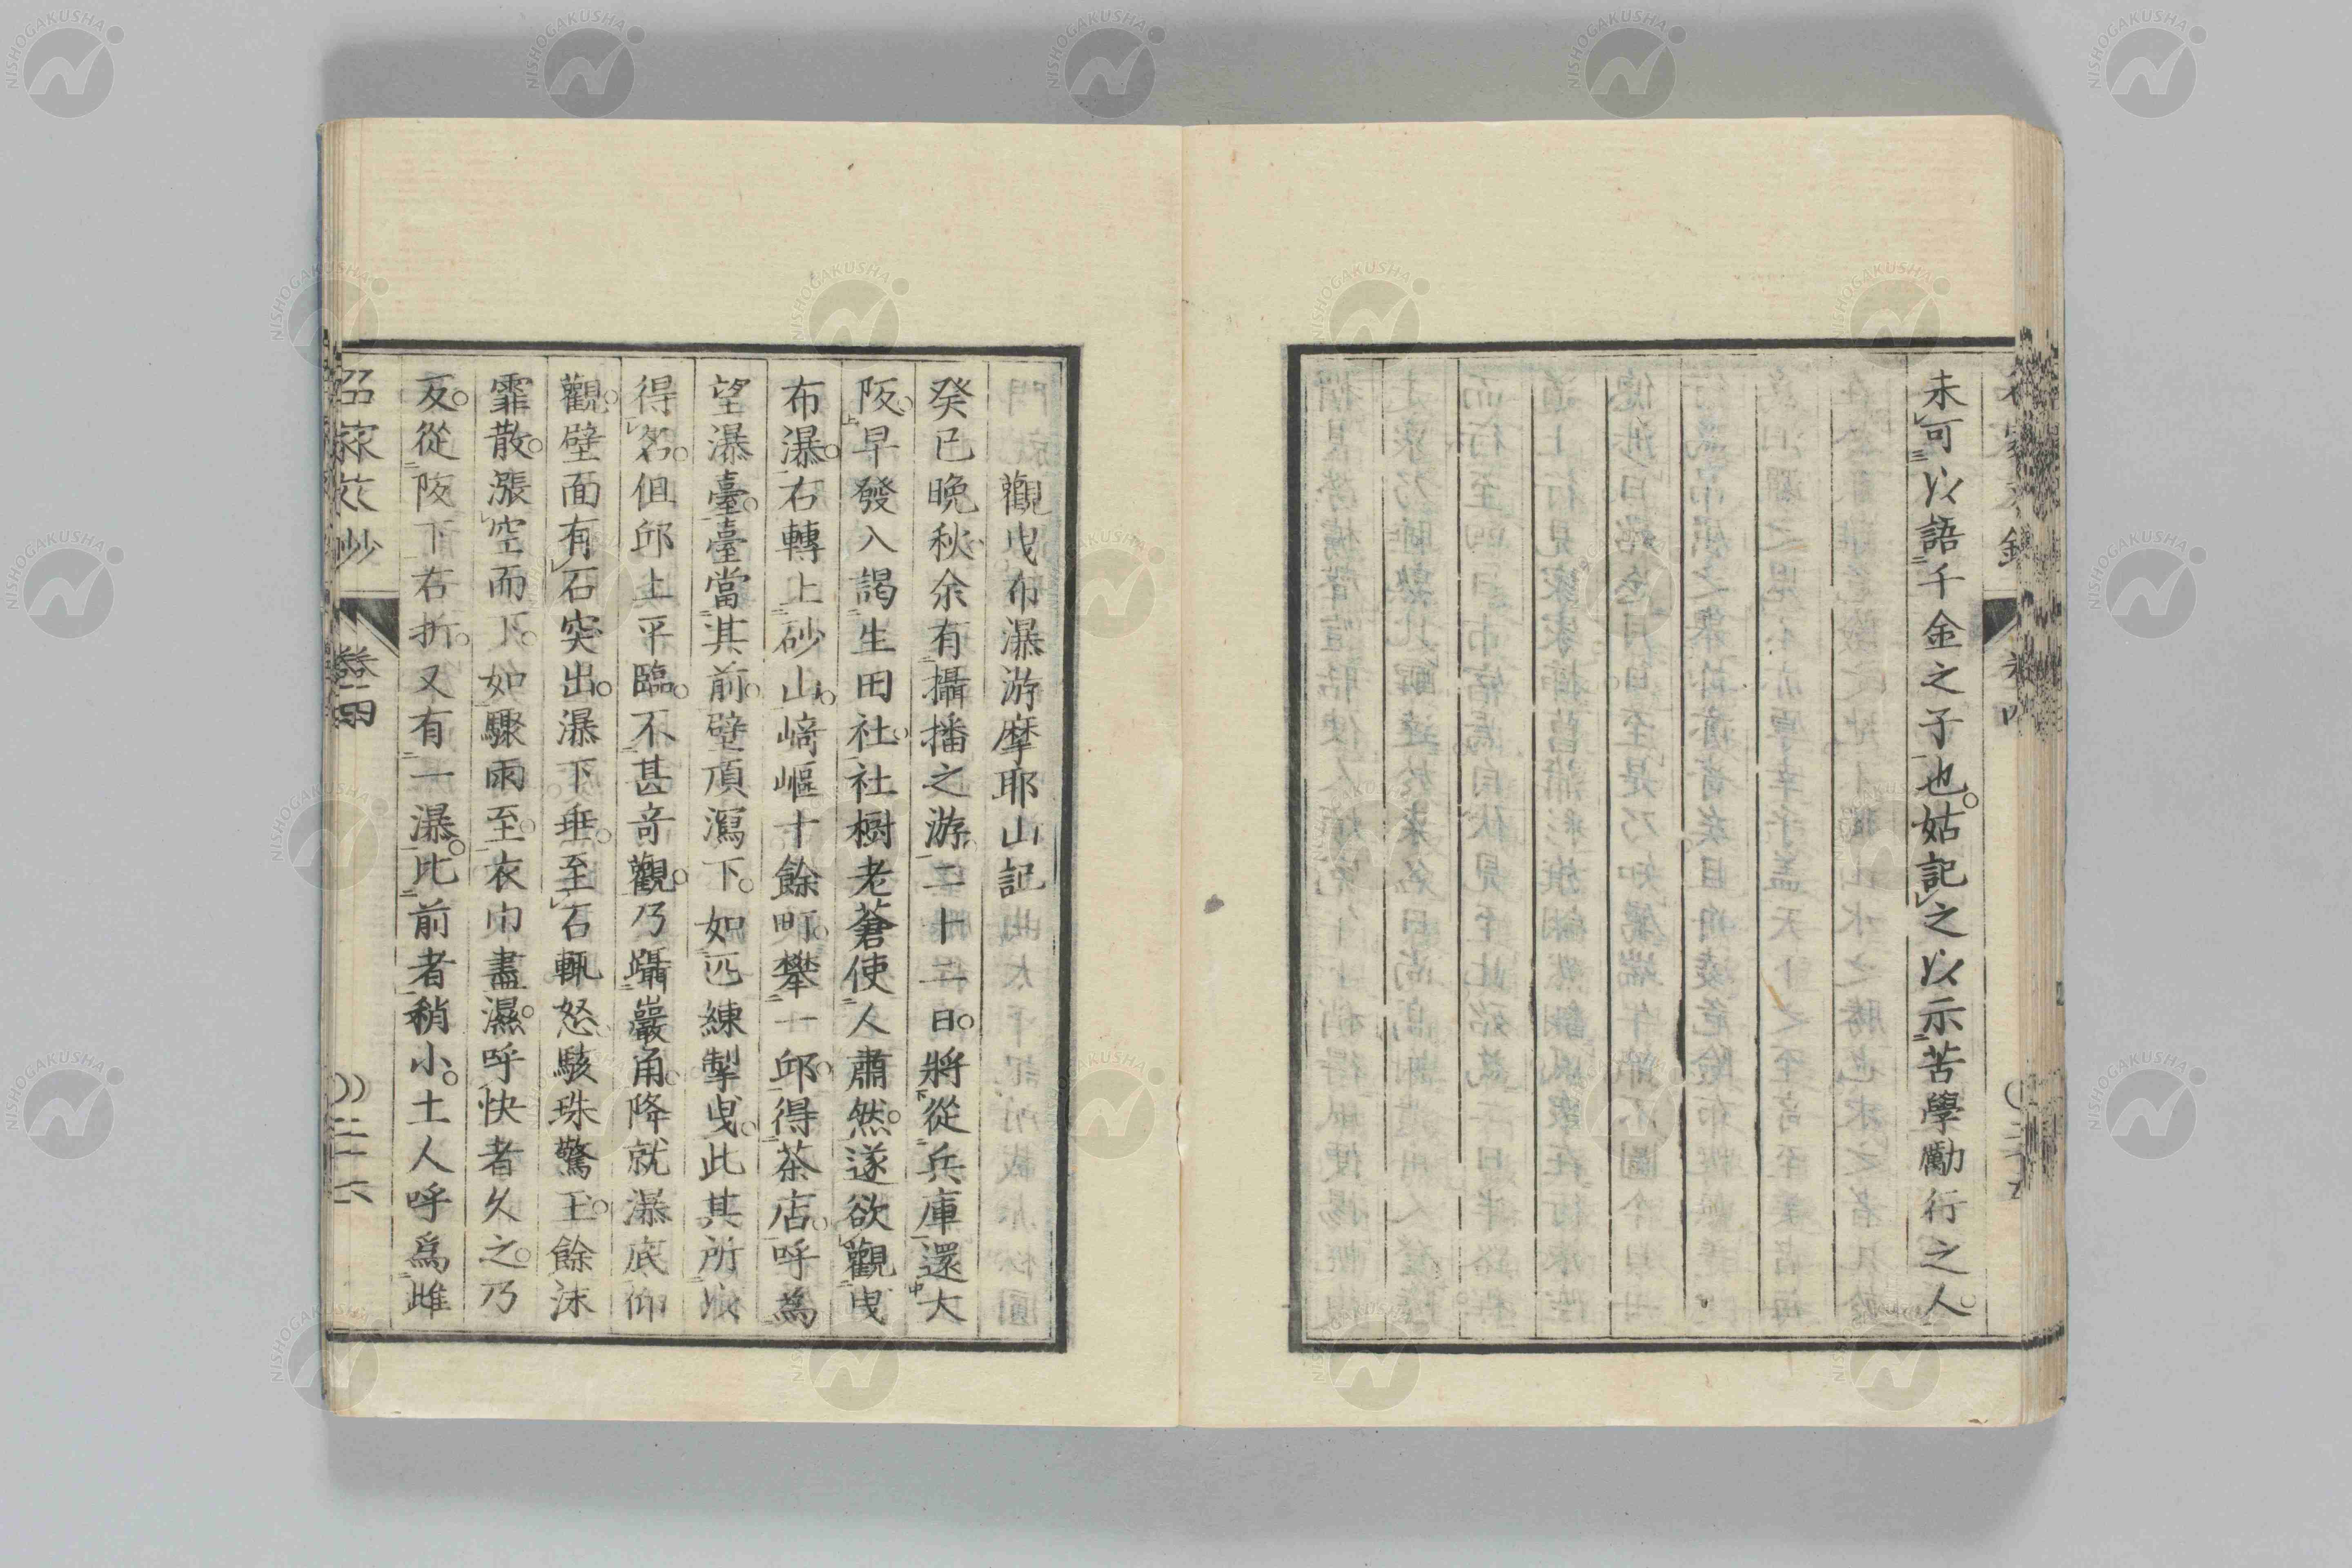 未可以語千金之子也。姑記之以示苦學勵行之人。
觀曳布瀑游摩耶山記
癸巳晩秋余有攝播之游。二十一日。將從兵庫還大
阪。早發入謁生田社。社樹老蒼使人肅然。遂欲觀曳
布瀑。右轉上砂山。﨑嶇十餘町。攀一邱。得茶店。呼爲
望瀑臺。臺當其前。壁頂瀉下。如匹練掣曳。此其所
得名。但邱上平臨。不甚奇觀。乃躡巖角。降就瀑底仰
觀。壁面有石突出。瀑下垂。至石輒怒駭珠驚玉。餘沫
霏散。漲空而下。如驟雨至。衣巾盡濕。呼快者久之。乃
反。從阪下右折。又有一瀑。比前者稍小。土人呼爲雌
卷四
二十六
NISHOGAKUSHA